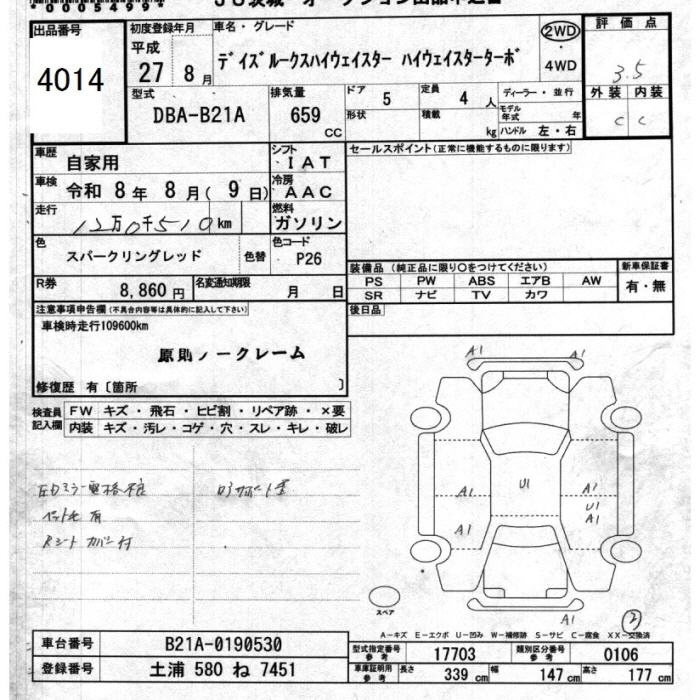 *0005499*
出品番号
4014
初度登録年月
平成
27 8月
車名・グレード
デイズルークスハイウェイスター ハイウェイスターターボ
2WD
・
4WD
評価点
3.5
外装 内装
C C
型式
DBA-B21A
排気量
659
CC
ドア
5
形状
定員
4 人
積載
kg
ディーラー・並行
モデル
年式 年
ハンドル 左・右
車歴
自家用
シフト
IAT
車検
令和 8年 8月( 9日)
冷房
AAC
走行
12万0千510km
燃料
ガソリン
色
スパークリングレッド
色替
色コード
P26
R券
8,860円
名変通知期限
月 日
セールスポイント(正常に機能するものに限ります)
装備品(純正品に限り○をつけてください)
PS PW ABS エアB AW
SR ナビ TV カワ
新車保証書
有・無
後日品
注意事項申告欄(不具合内容等は具体的に記入して下さい)
車検時走行109600km
原則ノークレーム
修復歴 有〔箇所 〕
検査員
記入欄
FW キズ・飛石・ヒビ割・リペア跡・×要
内装 キズ・汚レ・コゲ・穴・スレ・キレ・破レ
ペット毛 有
Rシートカバー付
A1 A1
A1 U1 A1
U1
A1 A1
A1
スペア
2
A-キズ E-エクボ U-凹み W-補修跡 S-サビ C-腐食 XX-交換済
車台番号
B21A-0190530
登録番号
土浦 580 ね 7451
型式指定番号
参考
17703
類別区分番号
参考
0106
車庫証明用
参考
長さ
339 cm
幅
147 cm
高さ
177 cm